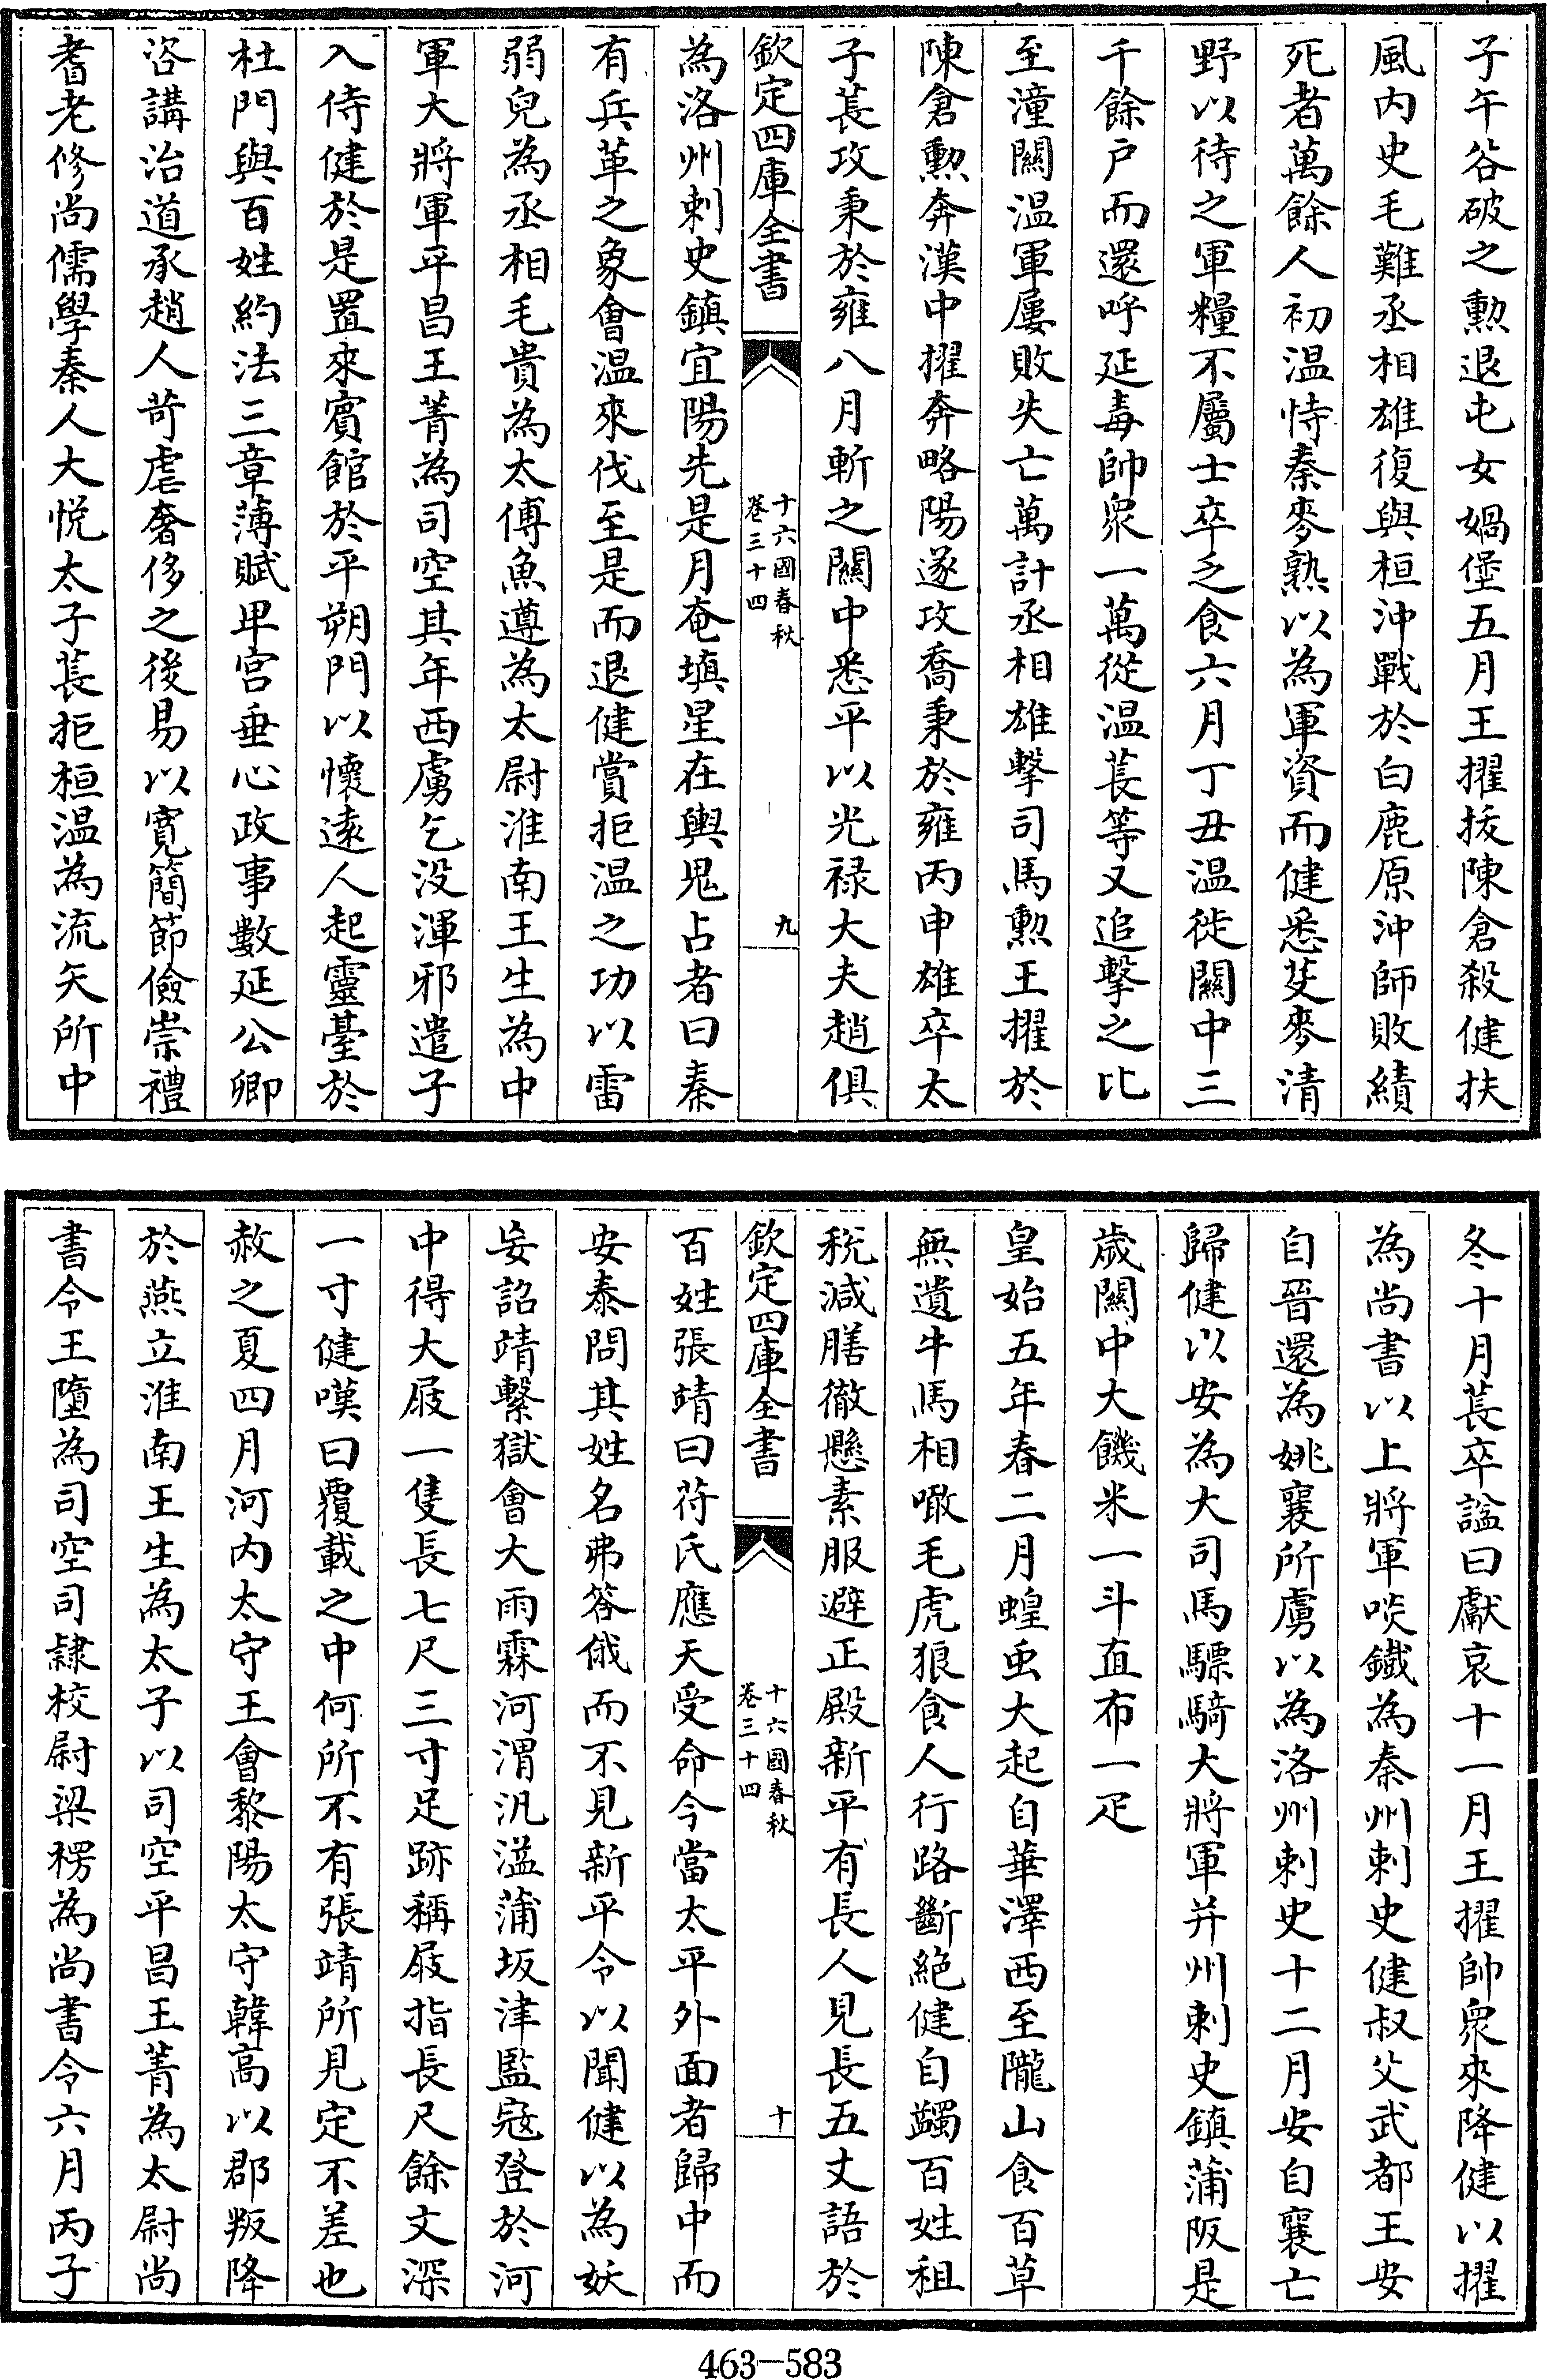 子午谷破之勲退屯女媧堡五月王擢㧞陳倉殺健扶
風内史毛難丞相雄復與桓沖戰於白鹿原沖師敗績
死者萬餘人初温恃秦麥熟以為軍資而健悉芟麥清
野以待之軍糧不屬士卒乏食六月丁丑温徙關中三
千餘户而還呼延毒帥衆一萬從温萇等又追擊之比
至潼關温軍屢敗失亡萬計丞相雄擊司馬勲王擢於
陳倉勲奔漢中擢奔略陽遂攻喬秉於雍丙申雄卒太
子萇攻秉於雍八月斬之關中悉平以光禄大夫趙俱
欽定四庫全書
十六國春秋
卷三十四
九
為洛州刺史鎮宜陽先是月奄填星在輿鬼占者曰秦
有兵革之象會温來伐至是而退健賞拒温之功以雷
弱兒為丞相毛貴為太傅魚遵為太尉淮南王生為中
軍大將軍平昌王菁為司空其年西虜乞没渾邪遣子
入侍健於是置來賓館於平朔門以懷逺人起靈臺於
杜門與百姓約法三章薄賦卑宫垂心政事數延公卿
咨講治道承趙人苛虐奢侈之後易以寛簡節儉崇禮
耆老修尚儒學秦人大悦太子萇拒桓温為流矢所中
冬十月萇卒諡曰獻哀十一月王擢帥衆來降健以擢
為尚書以上將軍啖鐵為秦州刺史健叔父武都王安
自晉還為姚襄所虜以為洛州刺史十二月安自襄亡
歸健以安為大司馬驃騎大將軍并州刺史鎮蒲阪是
歲關中大饑米一斗直布一疋
皇始五年春二月蝗虫大起自華澤西至隴山食百草
無遺牛馬相噉毛虎狼食人行路斷絶健自蠲百姓租
税減膳徹懸素服避正殿新平有長人見長五丈語於
欽定四庫全書
十六國春秋
卷三十四
十
百姓張靖曰苻氏應天受命今當太平外面者歸中而
安泰問其姓名弗答俄而不見新平令以聞健以為妖
妄詔靖繫獄會大雨霖河渭汎溢蒲坂津監宼登於河
中得大屐一隻長七尺三寸足跡稱屐指長尺餘文深
一寸健嘆曰覆載之中何所不有張靖所見定不差也
赦之夏四月河内太守王會黎陽太守韓高以郡叛降
於燕立淮南王生為太子以司空平昌王菁為太尉尚
書令王墮為司空司隷校尉梁楞為尚書令六月丙子
463—583